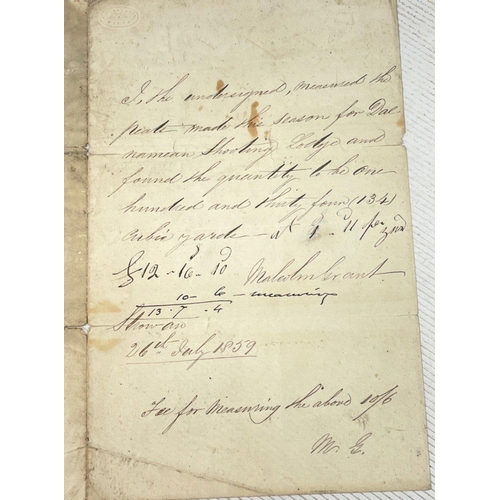 I, the undersigned, measured the
peats made this season for Dal
namean Shooting Lodge and
found the quantity to be one
hundred and thirty four (134)
Cubic yards - at 1s 11d per yard
£12 - 16 - 10 Malcolm Grant.
10 - 6 - measuring
13 . 7 . 4
26th July 1859
Fee for measuring the above 10/6
M. G.